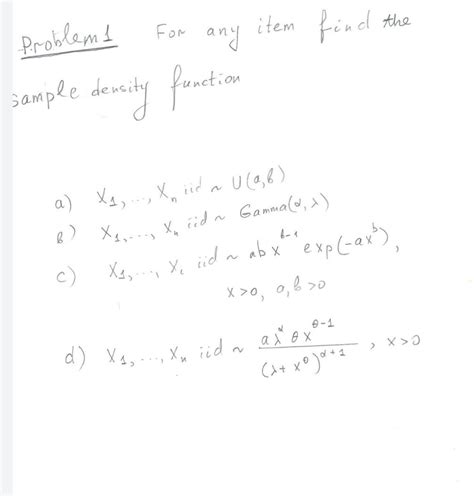 Problem 1 For any item find the
sample density function
a) X₁, ..., Xₙ iid ~ U(a,b)
b) X₁, ..., Xₙ iid ~ Gamma(α, λ)
c) X₁, ..., Xₙ iid ~ abx^{b-1} exp(-ax^b),
x>0, a,b>0
d) X₁, ..., Xₙ iid ~ aλ^α θx^{θ-1} / (λ+x^θ)^{α+1}, x>0